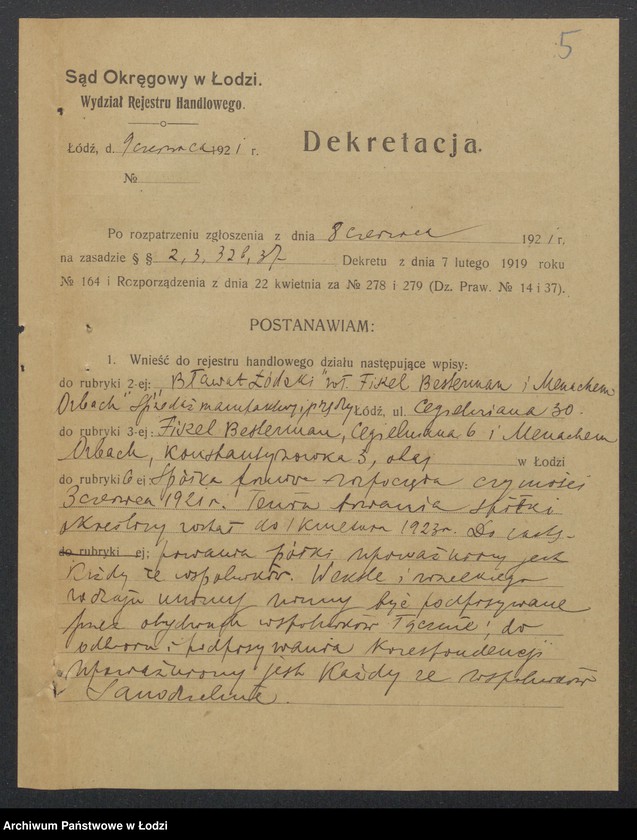 5
Sąd Okręgowy w Łodzi.
Wydział Rejestru Handlowego.
Dekretacja.
Łódź, d. 9 czerwca 1921 r.
№
Po rozpatrzeniu zgłoszenia z dnia 8 czerwca 1921 r.
na zasadzie § § 2, 3, 328, 37 Dekretu z dnia 7 lutego 1919 roku
№ 164 i Rozporządzenia z dnia 22 kwietnia za № 278 i 279 (Dz. Praw. № 14 i 37).
POSTANAWIAM:
1. Wnieść do rejestru handlowego działu następujące wpisy:
do rubryki 2-ej: „Bławat Łódzki" wł. Fiszel Besterman i Menachem
Orbach" Sprzedaż manufaktury, przy Łódź, ul. Cegielniana 30.
do rubryki 3-ej: Fiszel Besterman, Cegielniana 6 i Menachem
Orbach, Konstantynowska 5, obaj w Łodzi
do rubryki 6 ej Spółka firmowa rozpoczęła czynności
3 czerwca 1921 r. Termin trwania spółki
określony został do 1 kwietnia 1923 r. Do zastę-
do rubryki ej: powania spółki upoważniony jest
każdy ze wspólników. Weksle i wszelkiego
rodzaju umowy winny być podpisywane
przez obydwuch wspólników łącznie; do
odbioru i podpisywania korespondencji
upoważniony jest każdy ze wspólników
samodzielnie.
Archiwum Państwowe w Łodzi